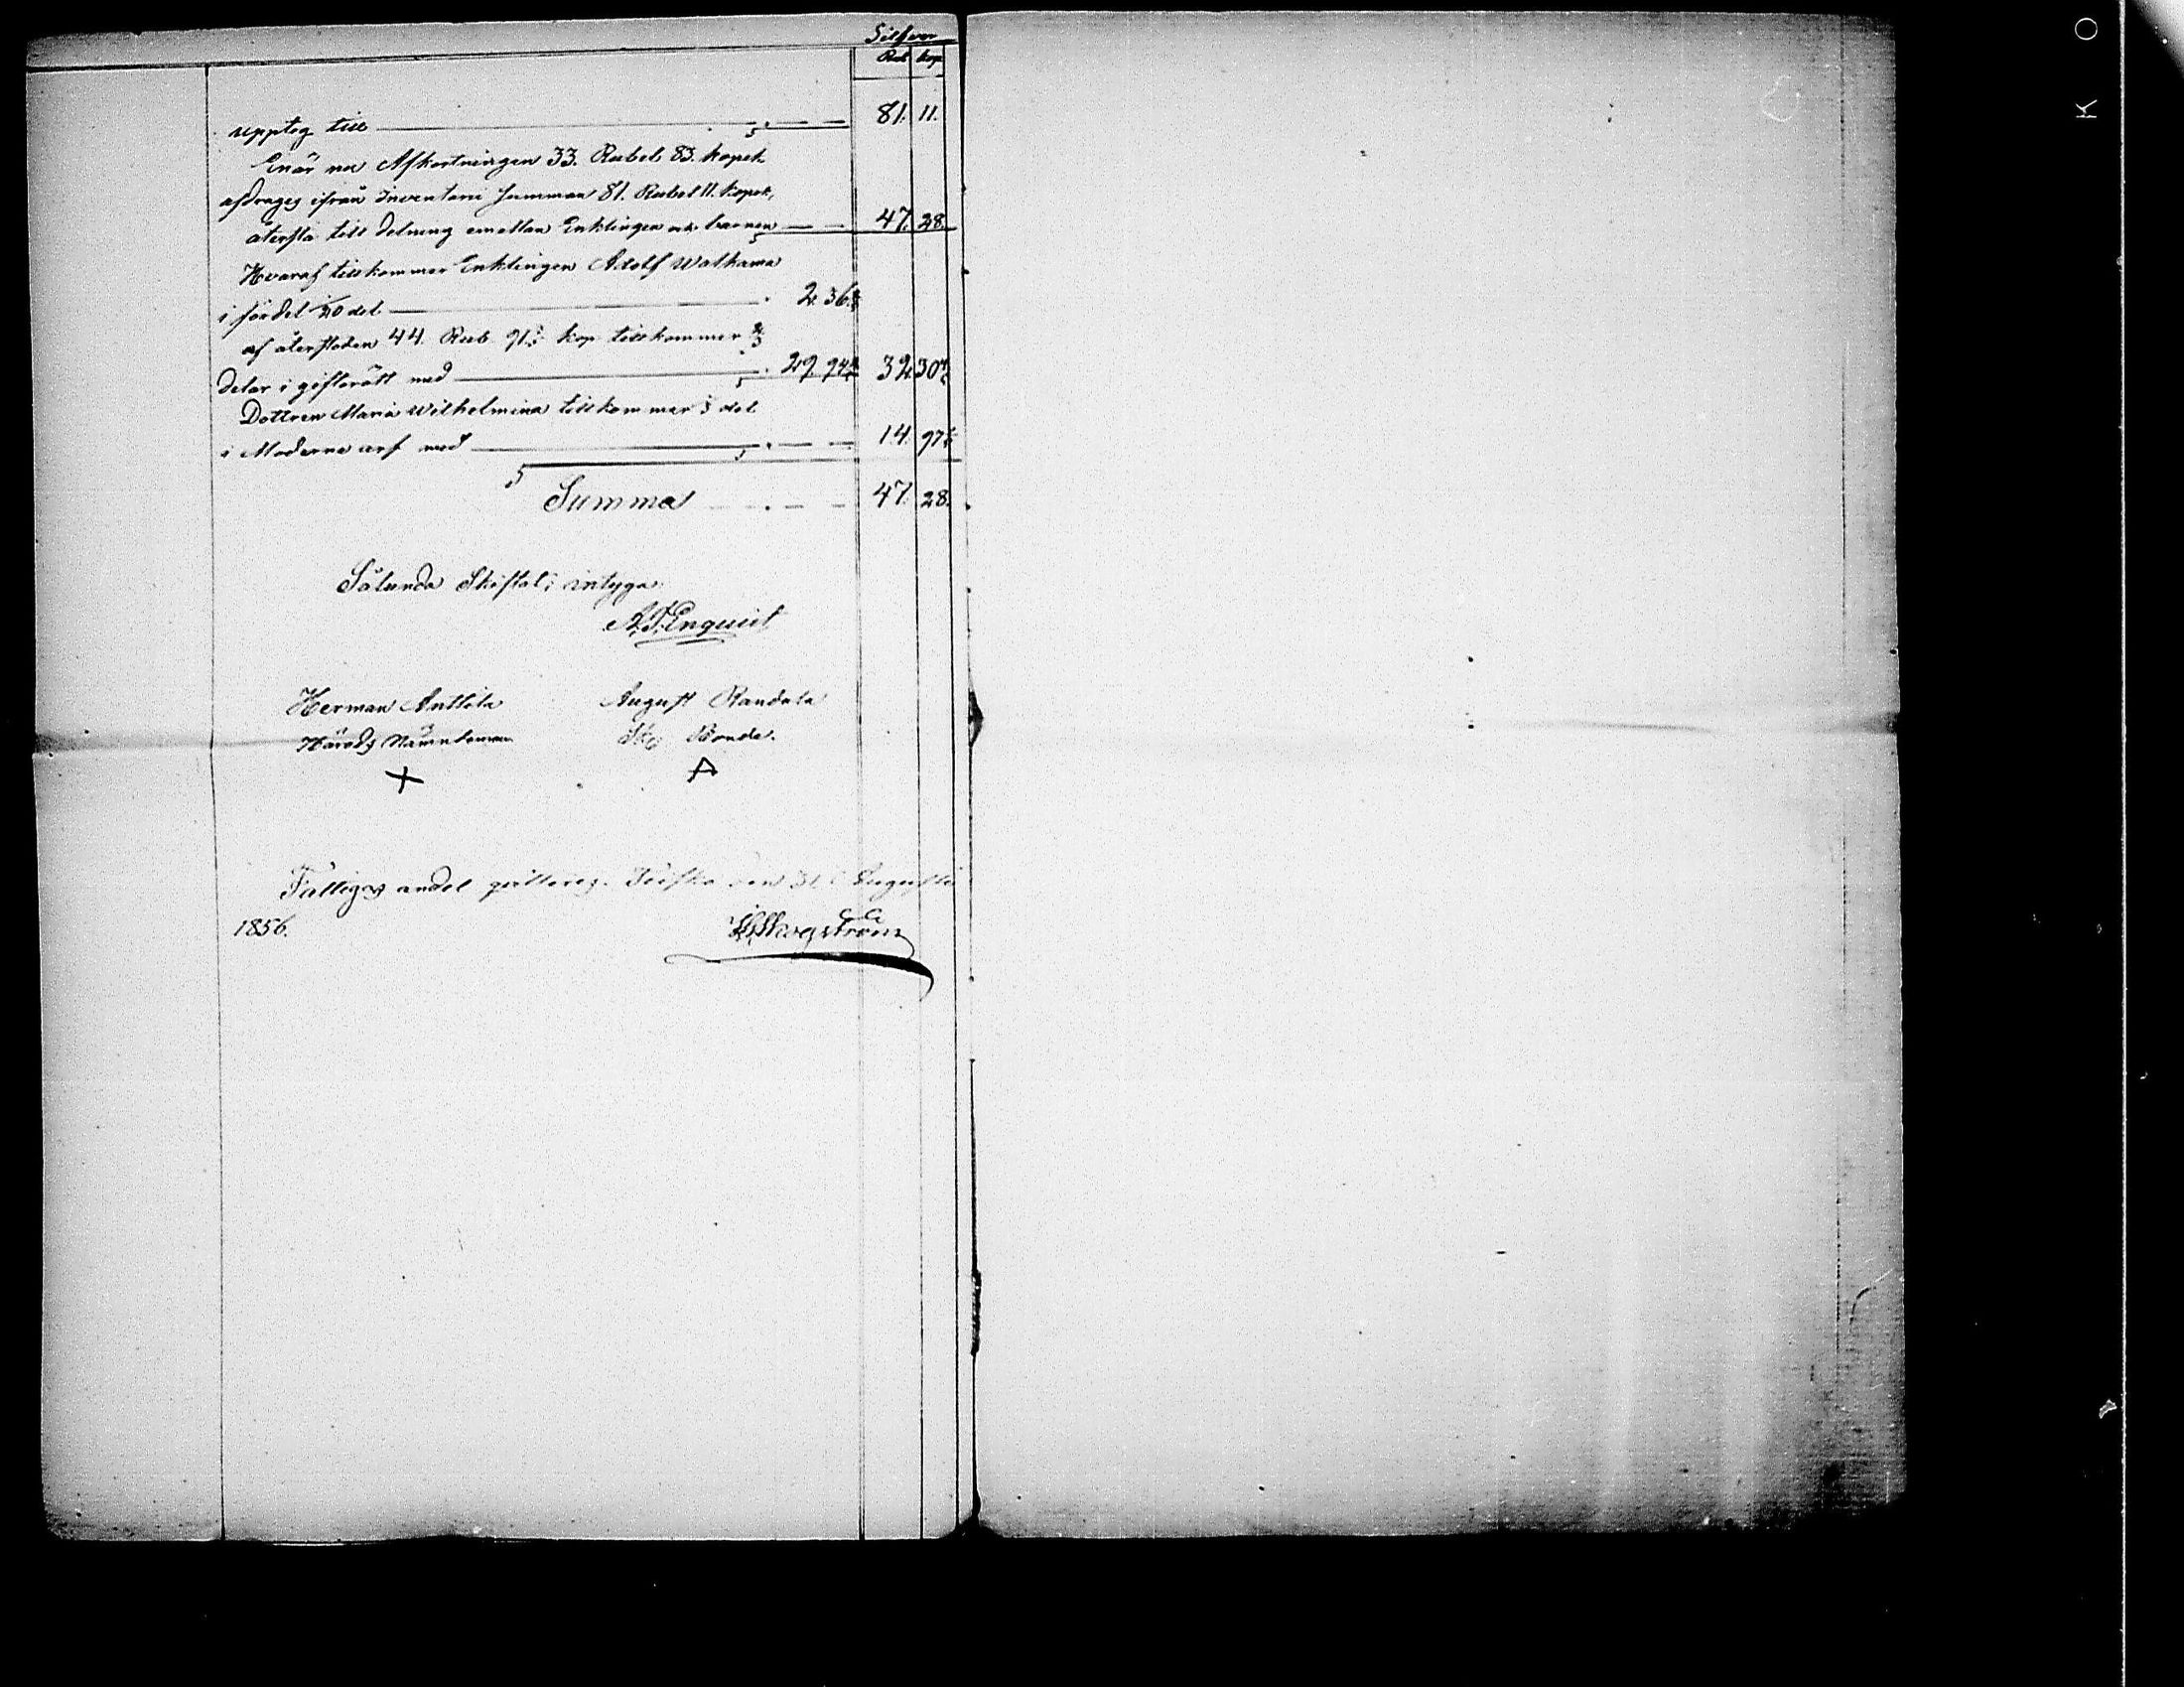 Silfver
Rub kop
upptog till 81. 11.
Enär nu Afkortningen 33. Rubel 83. kopek
afdrages ifrån Inventarii summan 81. Rubel 11. kopek,
återstå till delning emellan Enklingen och barnen 47. 28.
Hvaraf tillkommer Enklingen Adolf Walkama
i fördel 1/20 del 2. 36
af återstoden 44. Rub 91 kop tillkommer 2/3
delar i giftorätt med 29. 94 32. 30
Dottren Maria Wilhelmina tillkommer 1/3 del
i Moderne arf med 14. 97
Summa 47. 28.
Sålunda Skiftat; intyga
Enquist
Herman Anttila August Randala
Härads Nämndeman Bonde.
X A
Fattiges andel qvitteras. den 31 Augusti
1856.
K O